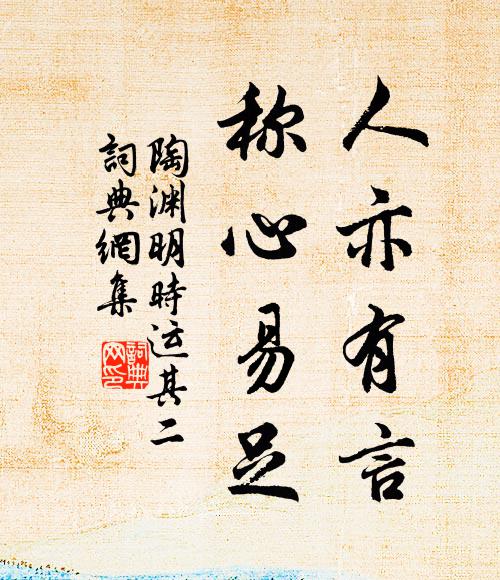 人亦有言
称心易足
陶渊明時运其二
詞典網集
詞典
网印